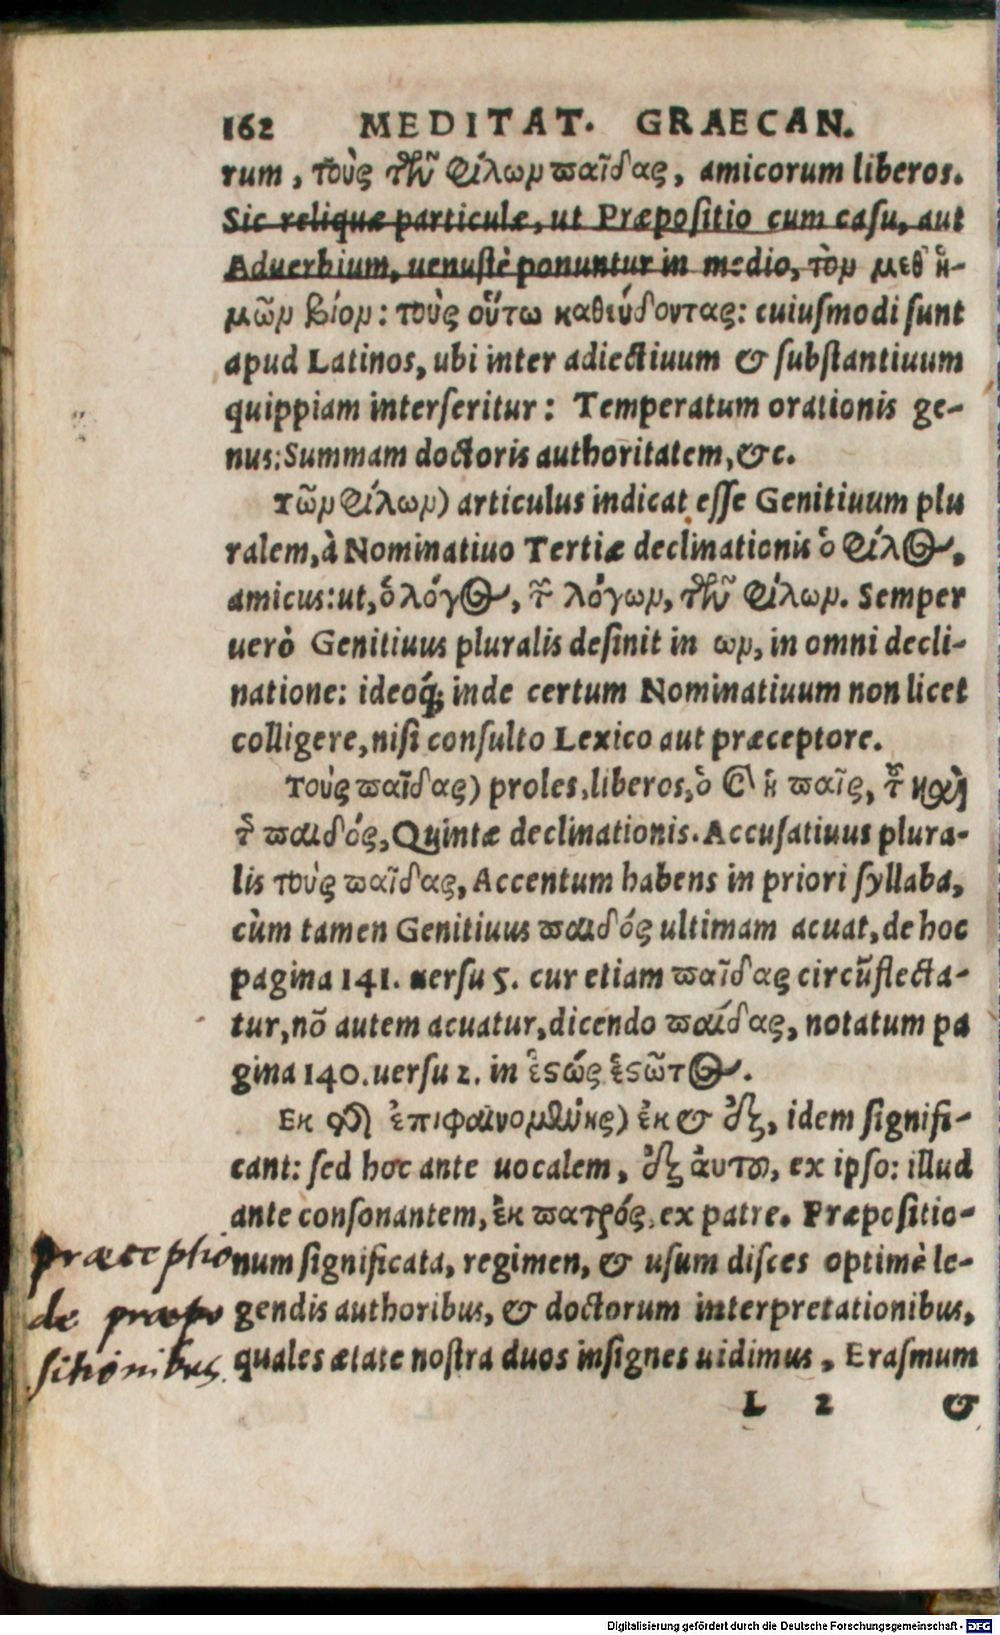 162 MEDITAT. GRAECAN.
rum, τοὺς τῶν φίλων παῖδας, amicorum liberos.
Sic reliquæ particulæ, ut Præpositio cum casu, aut
Aduerbium, uenustè ponuntur in medio, τὸν μεθ' ἡ-
μῶν βίον: τοὺς οὕτω καθεύδοντας: cuiusmodi sunt
apud Latinos, ubi inter adiectiuum & substantiuum
quippiam interseritur: Temperatum orationis ge-
nus: Summam doctoris authoritatem, &c.
τῶν φίλων) articulus indicat esse Genitiuum plu
ralem, à Nominatiuo Tertiæ declinationis ὁ φίλος,
amicus: ut, ὁ λόγος, τῶν λόγων, τῶν φίλων. Semper
uerò Genitiuus pluralis desinit in ων, in omni decli-
natione: ideoq́; inde certum Nominatiuum non licet
colligere, nisi consulto Lexico aut præceptore.
τοὺς παῖδας) proles, liberos, ὁ & ἡ παῖς, τοῦ καὶ
τῆς παιδός, Quintæ declinationis. Accusatiuus plura-
lis τοὺς παῖδας, Accentum habens in priori syllaba,
cùm tamen Genitiuus παιδός ultimam acuat, de hoc
pagina 141. uersu 5. cur etiam παῖδας circūflecta-
tur, nō autem acuatur, dicendo παίδας, notatum pa
gina 140. uersu 2. in ἑστώς ἑστῶτος.
Εκ τῆς ἐπιφαινομένης) ἐκ & ἐξ, idem signifi-
cant: sed hoc ante uocalem, ἐξ αὐτοῦ, ex ipso: illud
ante consonantem, ἐκ πατρός, ex patre. Præpositio-
num significata, regimen, & usum disces optimè le-
gendis authoribus, & doctorum interpretationibus,
quales ætate nostra duos insignes uidimus, Erasmum
L 2 &
præceptio
de præpo
sitionibus.
Digitalisierung gefördert durch die Deutsche Forschungsgemeinschaft - DFG